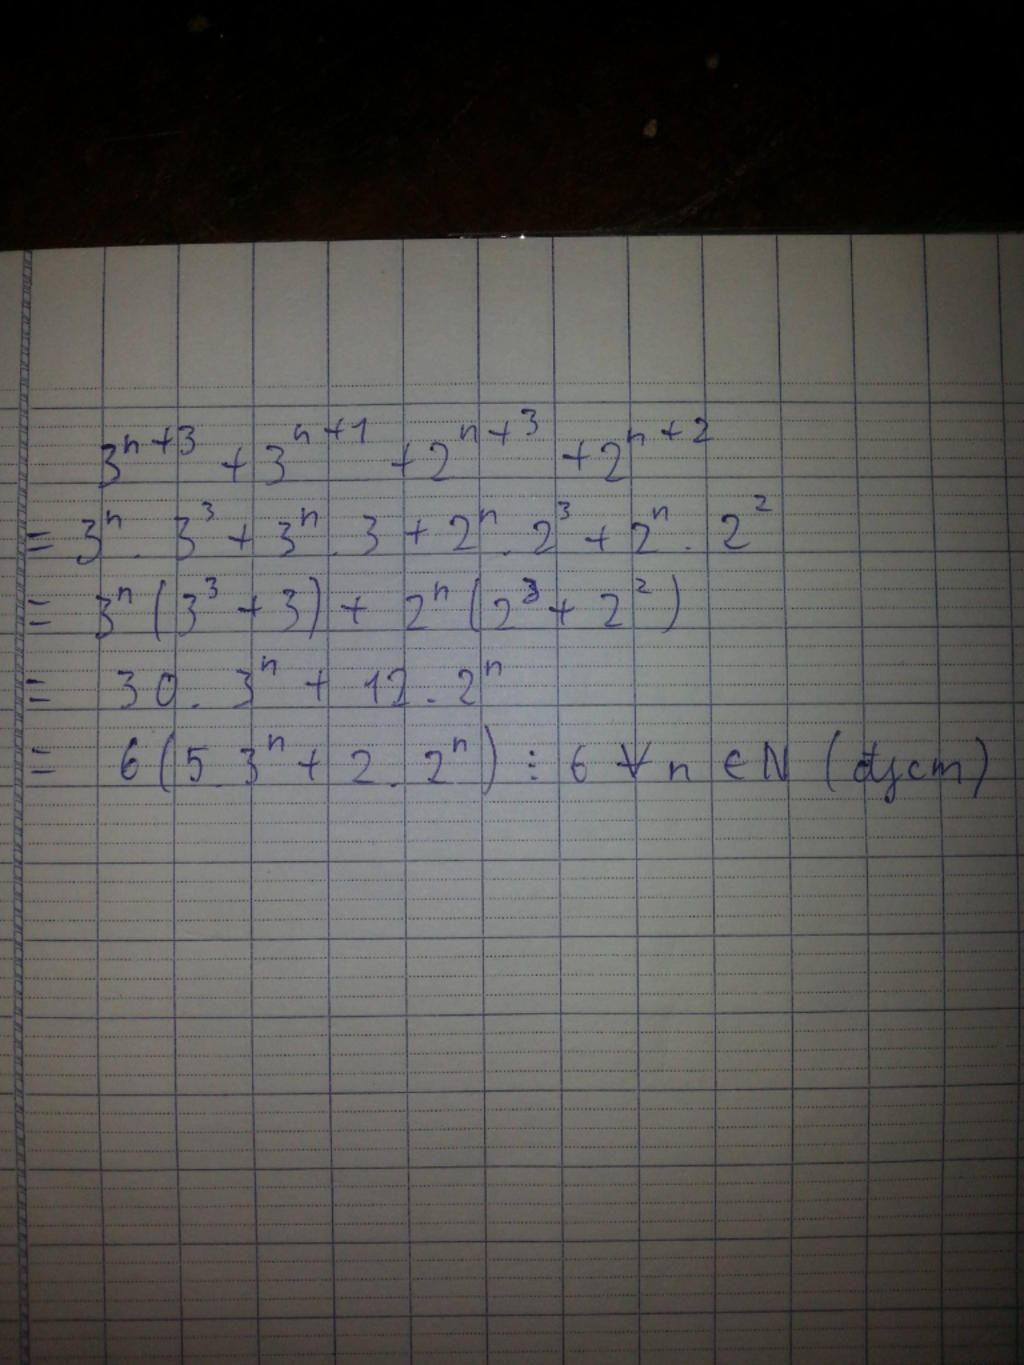 3^{n+3} + 3^{n+1} + 2^{n+3} + 2^{n+2}
= 3^n . 3^3 + 3^n . 3 + 2^n . 2^3 + 2^n . 2^2
= 3^n (3^3 + 3) + 2^n (2^3 + 2^2)
= 30 . 3^n + 12 . 2^n
= 6 (5 . 3^n + 2 . 2^n) ⋮ 6 ∀ n ∈ N (đpcm)